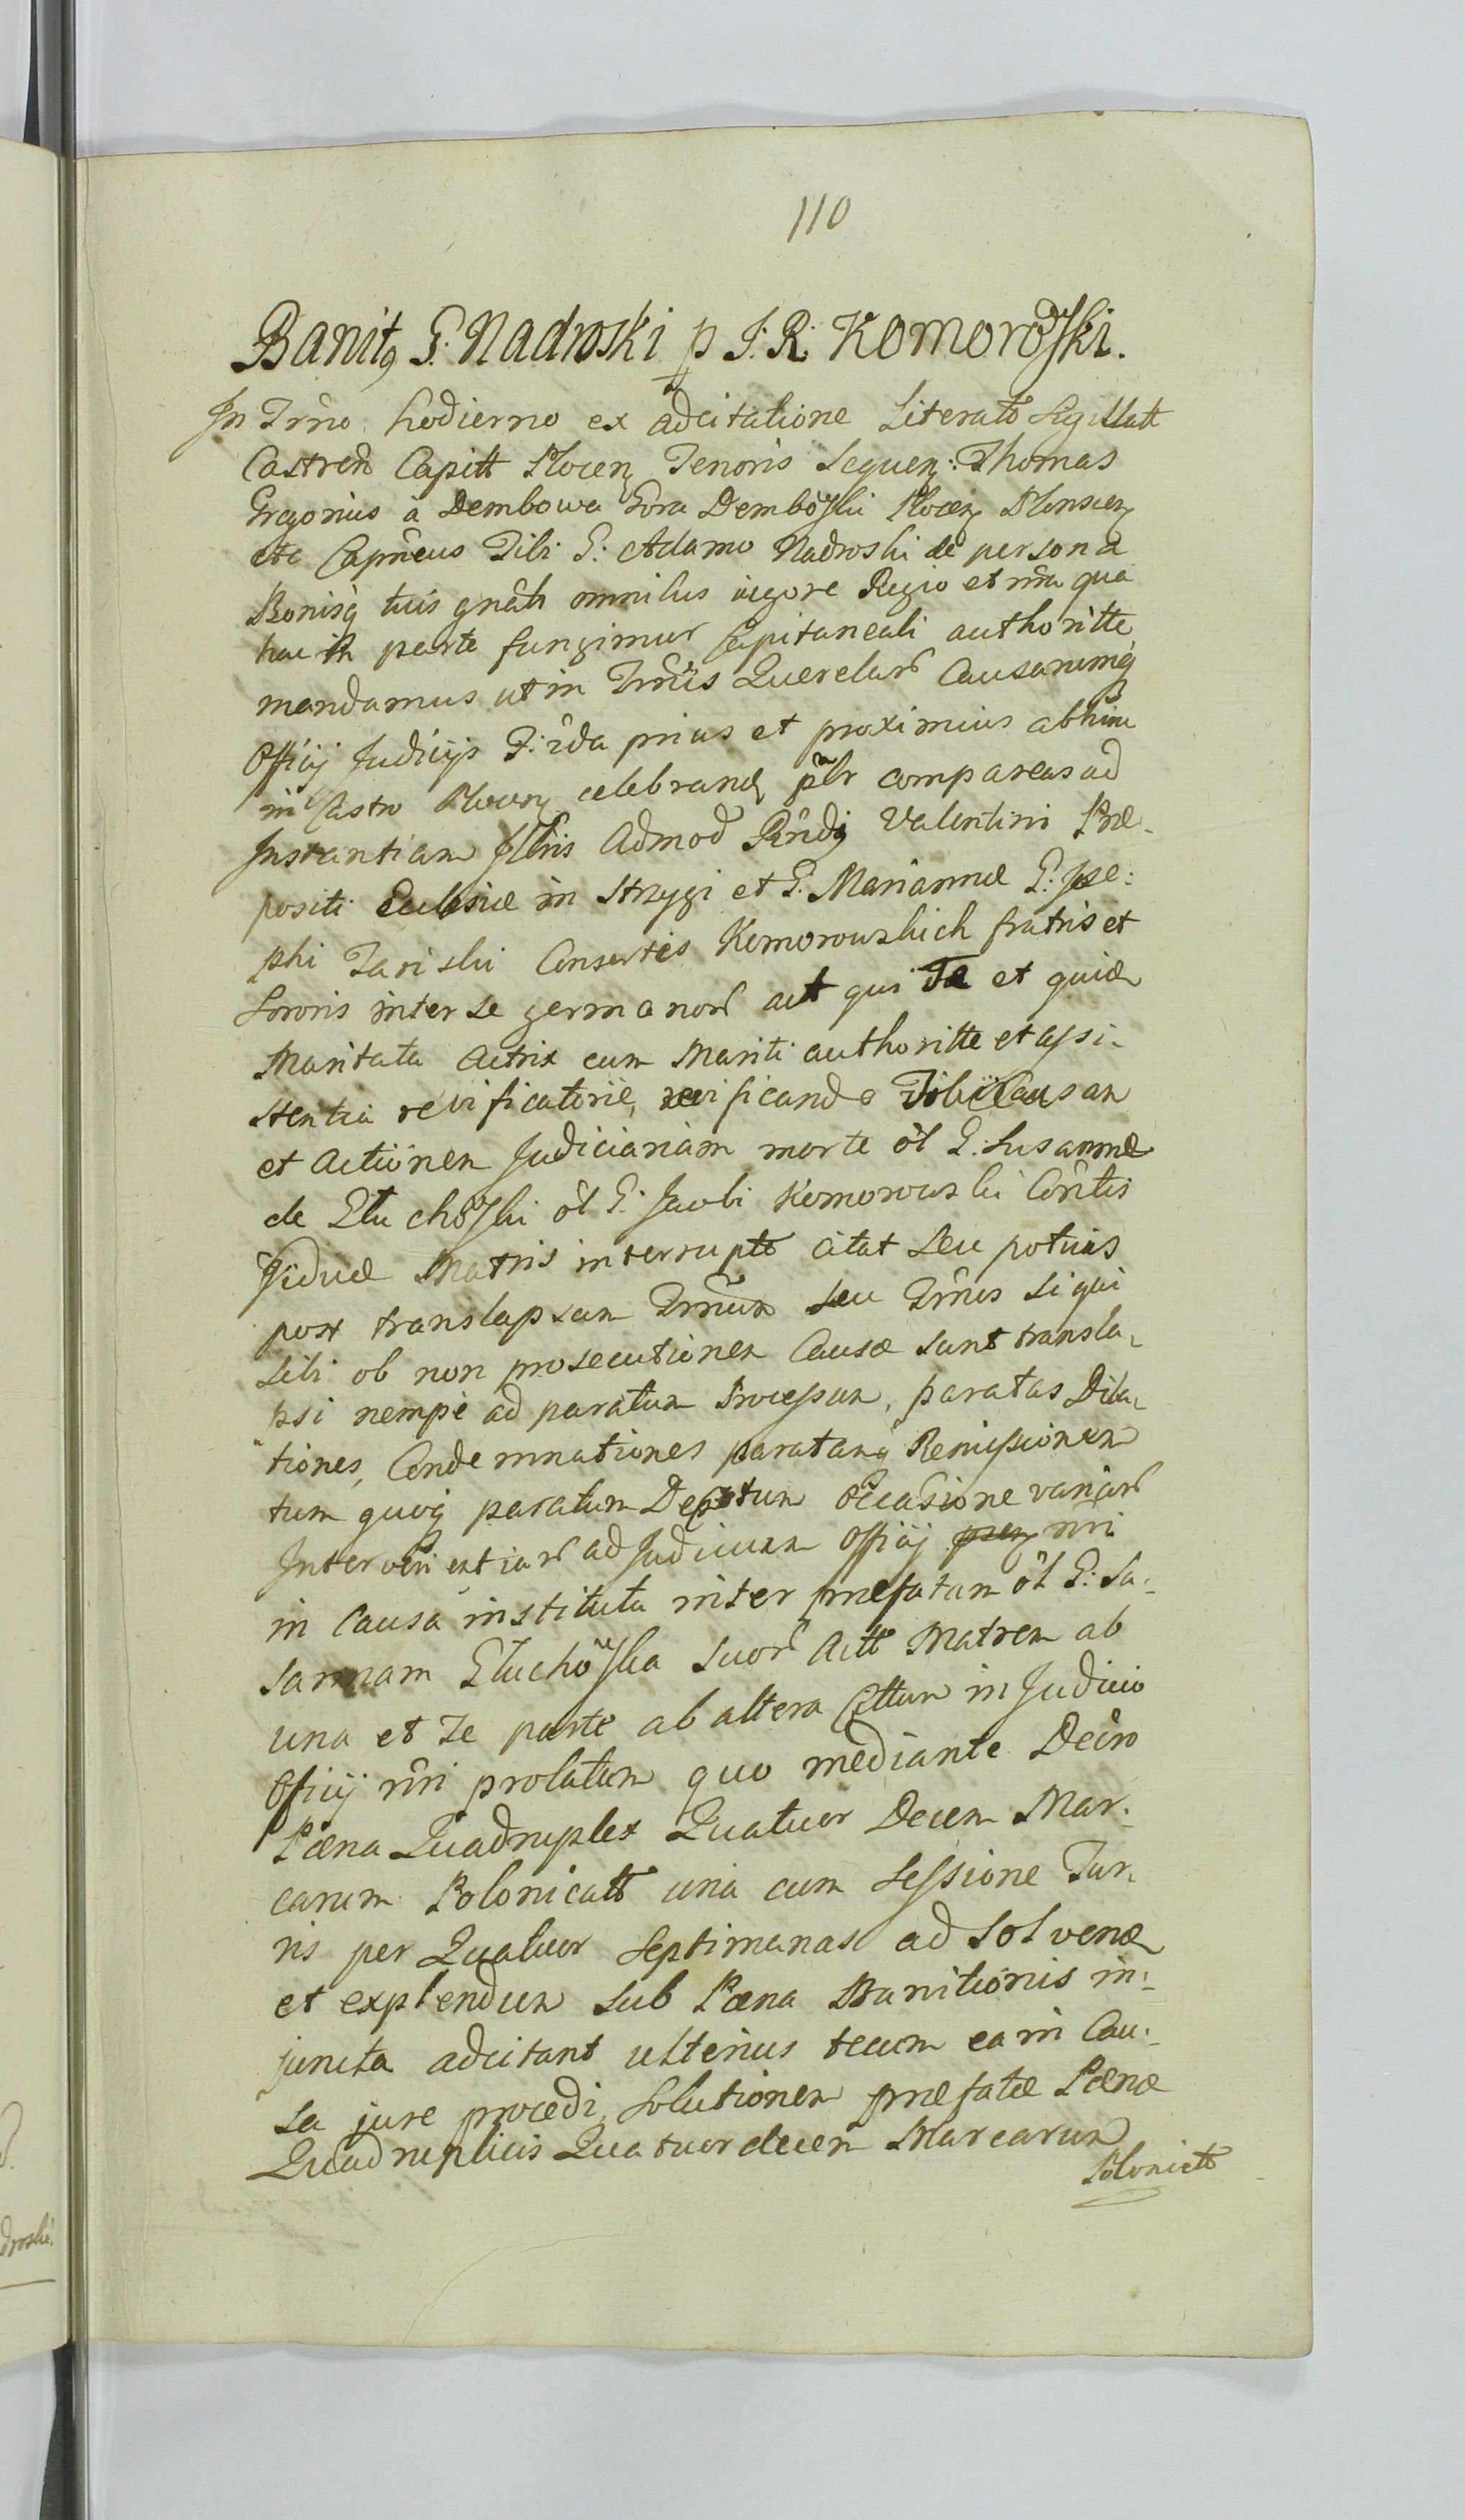 110
Banitq G. Nadroski p J: R: Komorowski.
In Trño hodierno ex adcitatione Literato Sigillatt
Castren Capitt Plocen Tenoris Sequen: Thomas
Gregorius à Dembowa Gora Dembowski Plocen Plonscen
etc Capñeus Tibi G: Adamo Nadroski de persona
Bonisq tuis gnalr omnibus vigore Regio et ñra qua
hac in parte fungimur Capitaneali authoritte
mandamus ut in Trñis Querelar Causarumq
Officij Judicijs F: 2da prius et proximius abhinc
in Castro Plocen celebrand plr compareas ad
Instantiam Illris Admod Rñdi Valentini Præ-
positi Ecclesiæ in Strzygi et G. Mariannæ G: Jose:
phi Jariski Consortis Komorowskich fratris et
Sororis inter se germanor act qui Te et quid
Maritata Actrix cum Mariti authoritte et assi-
stentia revificatorie, revificando Tibi Causam
et Actionem Judiciariam morte ol G: Susannæ
de Gluchowski ol G: Jacobi Komorowski Conrtis
Viduæ Matris interrupto citat Seu potius
post translapsum Trñum seu Trños si qui
Tibi ob non prosecutionem Causæ sunt transla-
psi nempè ad paratum Processum, paratas Dila-
tiones, Condemnationes paratamq Remissionem
tum quoq paratum Decretum Occasione variar
Intervenientiar ad Judicium Officij nri
in Causa instituta inter præfatam ol G: Su-
sannam Gluchowska suor Actt Matrem ab
una et Te parte ab altera Cittum in Judicio
Officij nri prolatum quo mediante Decro
Pæna Quadruplex Quatuor Decem Mar-
carum Polonicatt una cum Sessione Tur-
ris per Quatuor Septimanas ad Solvend
et explendum sub Pæna Banitionis in-
juncta adcitant ulterius tecum ea in Cau-
sa jure procedi, Solutionem præfatæ Pænæ
Quadruplicis Quatuordecem Marcarum
Polonictt